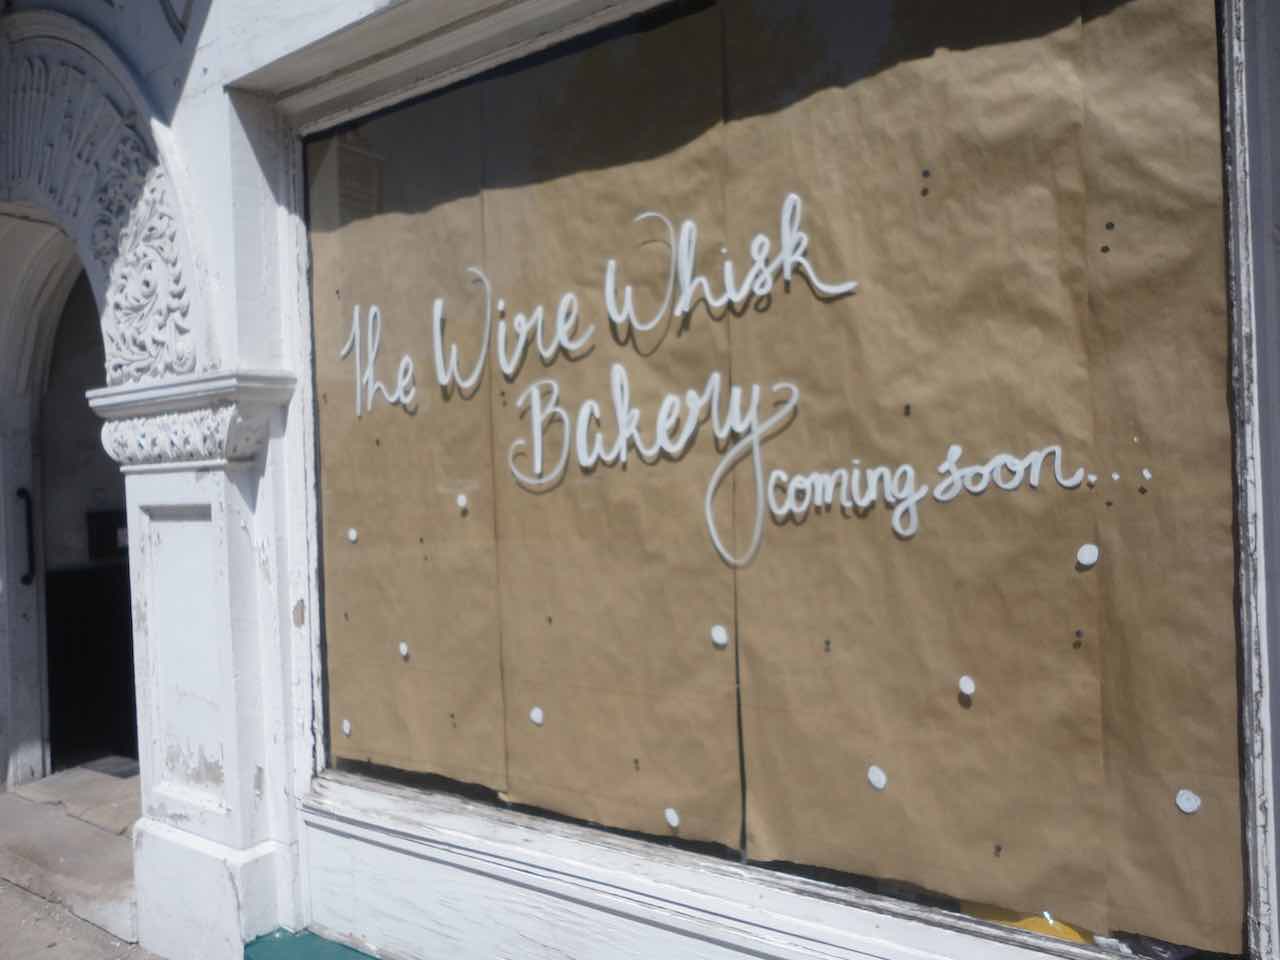 The Wire Whisk
Bakery
coming soon...